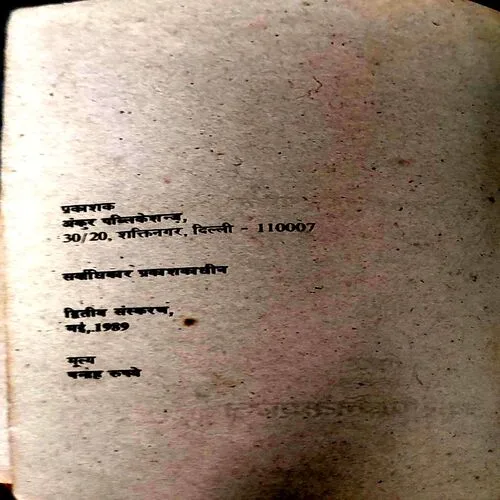 प्रकाशक
अंकुर पब्लिकेशन्ज़,
30/20, शक्तिनगर, दिल्ली - 110007
सर्वाधिकार प्रकाशकाधीन
द्वितीय संस्करण,
मई, 1989
मूल्य
पन्द्रह रुपये